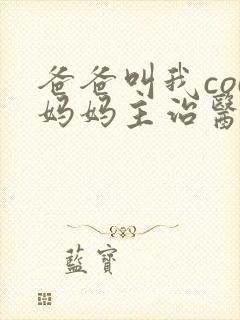 爸爸叫我coo
妈妈主治醫
藍寶